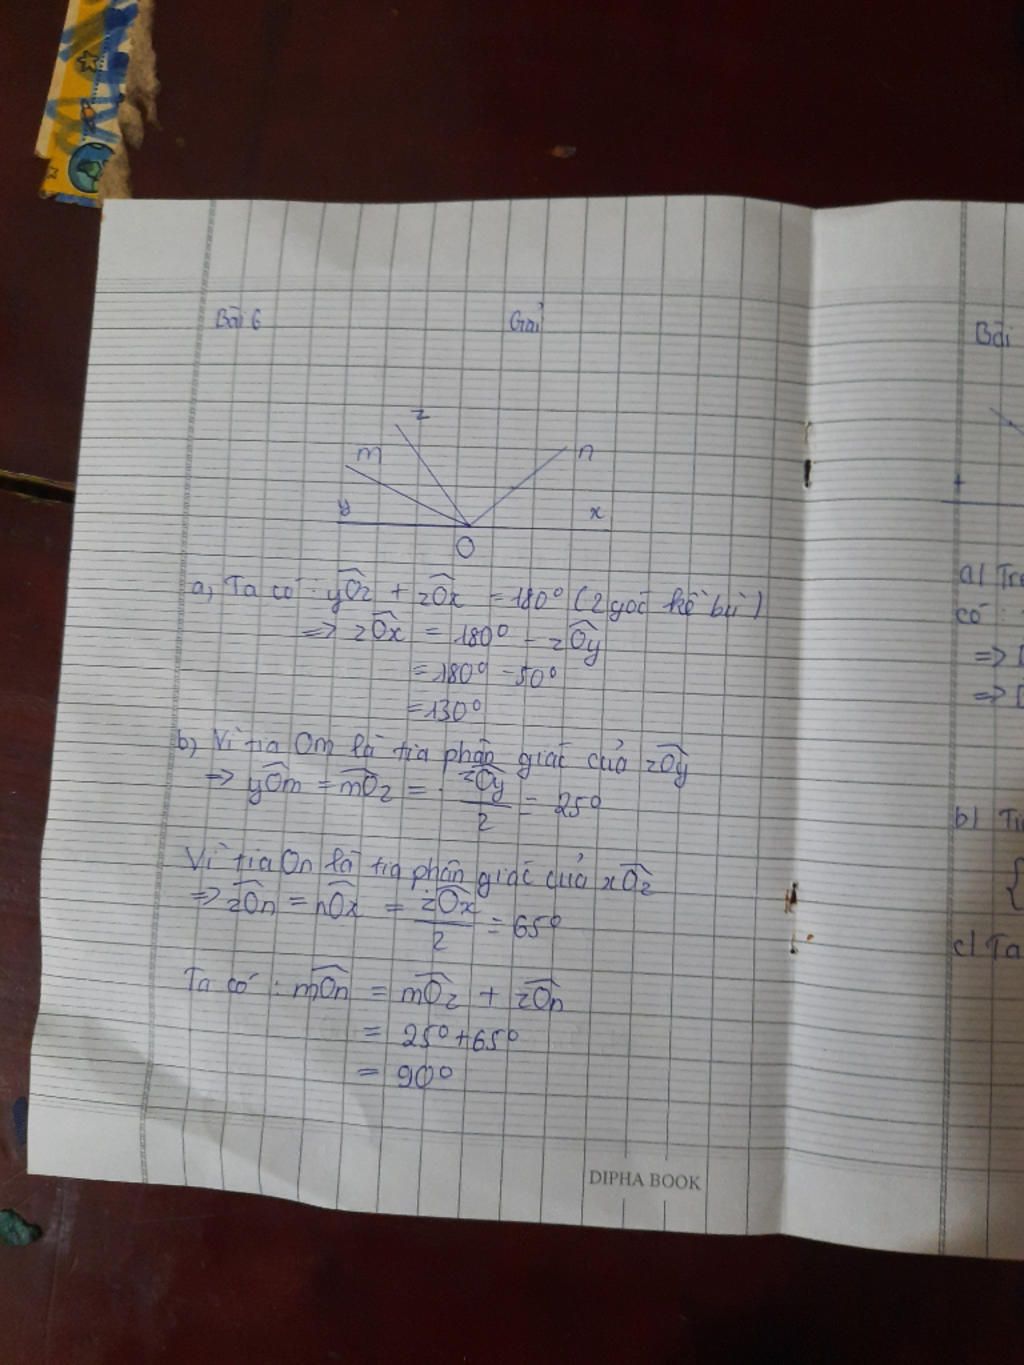 Bài 6 Giải
z
m
n
y
x
O
a, Ta có : yOz + zOx = 180° (2 góc kề bù)
=> zOx = 180° - zOy
= 180° - 50°
= 130°
b, Vì tia Om là tia phân giác của zOy
=> yOm = mOz = zOy/2 = 25°
Vì tia On là tia phân giác của xOz
=> zOn = nOx = zOx/2 = 65°
Ta có : mOn = mOz + zOn
= 25° + 65°
= 90°
DIPHA BOOK
Bài
a)
có :
=>
=>
b)
{
c) Ta